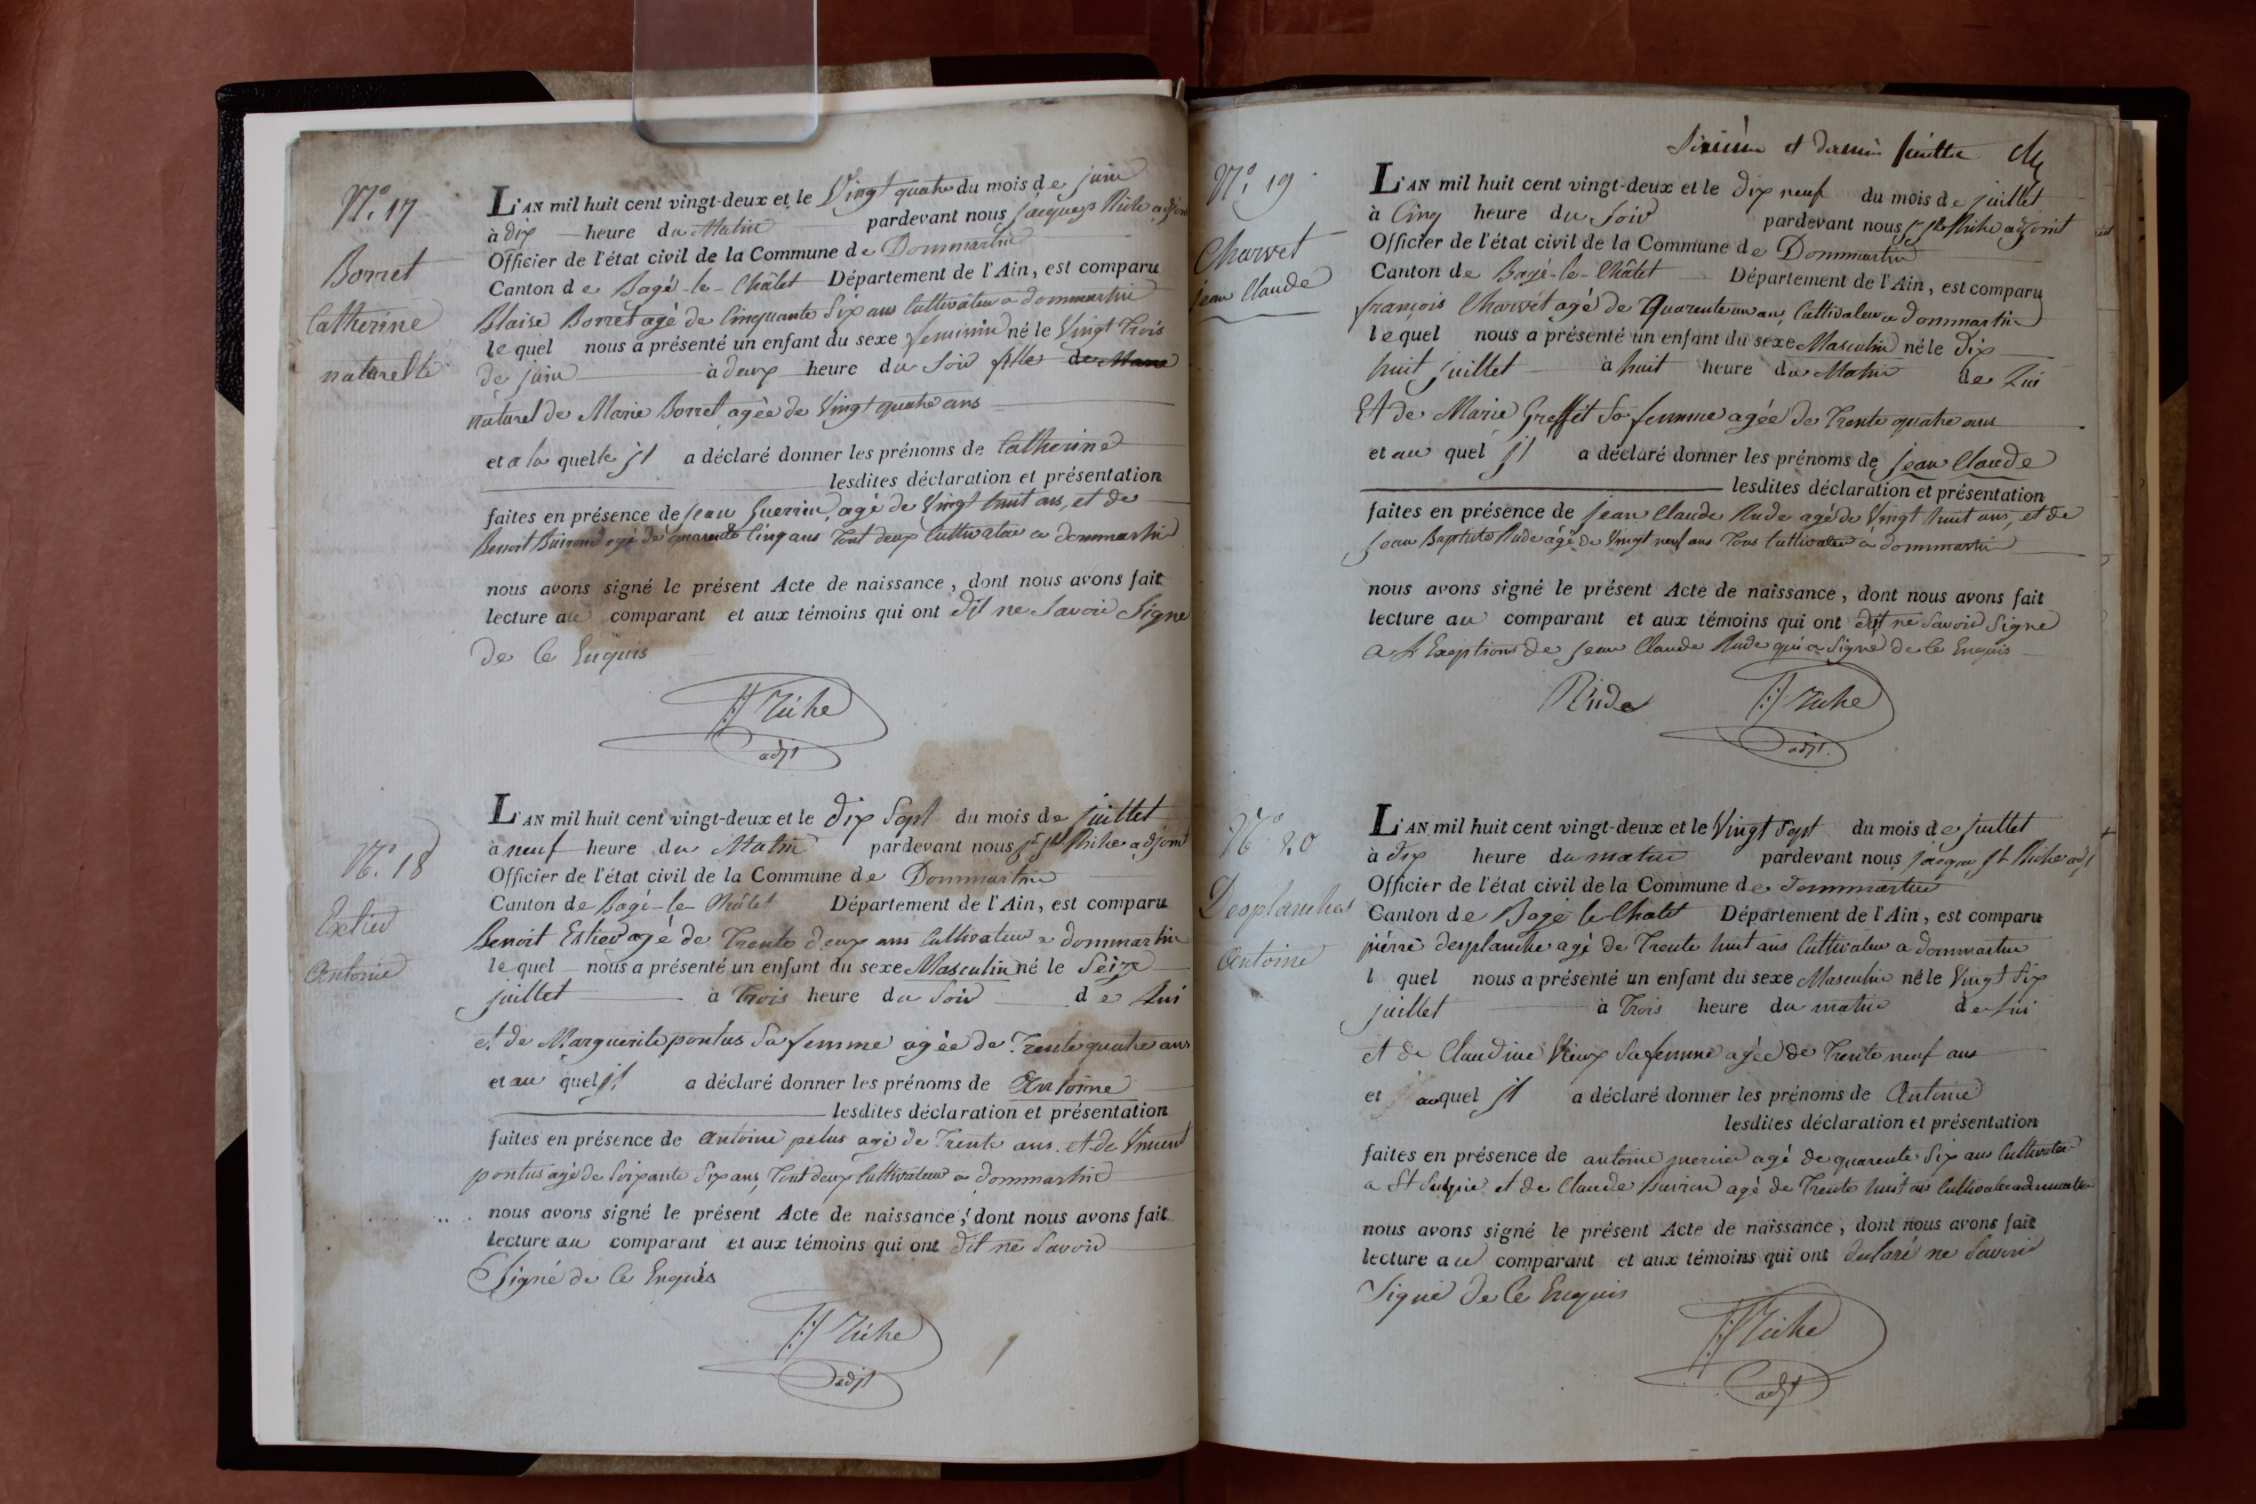 N.° 17
Borret
Catherine
naturelle
L'AN mil huit cent vingt-deux et le Vingt quatre du mois de juin
à dix heure du Matin pardevant nous Jacques Riche adjoint
Officier de l'état civil de la Commune de Dommartin
Canton de Bagé-le-Châtel Département de l'Ain, est comparu
Blaise Borret agé de Cinquante Six ans Cultivateur a dommartin
lequel nous a présenté un enfant du sexe feminin né le Vingt Trois
de juin à deux heure du Soir fille de Marie
naturel de Marie Borret agée de Vingt quatre ans
et a la quelle il a déclaré donner les prénoms de Catherine
lesdites déclaration et présentation
faites en présence de jean Guerrin, agé de Vingt huit ans, et de
Benoit Buiron agé de quarante Cinq ans Tout deux Cultivateur a dommartin
nous avons signé le présent Acte de naissance, dont nous avons fait
lecture au comparant et aux témoins qui ont dit ne Savoir Signe
de Ce Enquis
Riche
adjt
N.° 18
Estier
Antoine
L'AN mil huit cent vingt-deux et le dix Sept du mois de juillet
à neuf heure du Matin pardevant nous Riche adjoint
Officier de l'état civil de la Commune de Dommartin
Canton de Bagé-le-Châtel Département de l'Ain, est comparu
Benoit Estier agé de Trente deux ans Cultivateur a dommartin
lequel nous a présenté un enfant du sexe Masculin né le Seize
juillet à Trois heure du Soir de Lui
et de Marguerite pontus Sa femme agée de Trente quatre ans
et au quel il a déclaré donner les prénoms de Antoine
lesdites déclaration et présentation
faites en présence de antoine pelus agé de Trente ans. et de Vincent
pontus agé de Soixante Six ans, Tout deux Cultivateur a dommartin
nous avons signé le présent Acte de naissance, dont nous avons fait
lecture au comparant et aux témoins qui ont dit ne Savoir
Signé de Ce Enquis
Riche
adjt
Sixième et dernier feuillet
N.° 19
Charvet
jean Claude
L'AN mil huit cent vingt-deux et le dix neuf du mois de juillet
à Cinq heure du Soir pardevant nous Riche adjoint
Officier de l'état civil de la Commune de Dommartin
Canton de Bagé-le-Châtel Département de l'Ain, est comparu
françois Charvet agé de Quarente un an, Cultivateur a dommartin
lequel nous a présenté un enfant du sexe Masculin né le dix
huit juillet à huit heure du Matin de Lui
Et de Marie Greffet Sa femme agée de Trente quatre ans
et au quel il a déclaré donner les prénoms de jean Claude
lesdites déclaration et présentation
faites en présence de jean Claude Rude agé de Vingt huit ans, et de
jean Baptiste Rude agé de Vingt neuf ans Tous Cultivateur a dommartin
nous avons signé le présent Acte de naissance, dont nous avons fait
lecture au comparant et aux témoins qui ont dit ne Savoir Signe
a L Exeption de jean Claude Rude qui a Signé de Ce Enquis
Rude
Riche
adjt.
N° 20
Desplanches
Antoine
L'AN mil huit cent vingt-deux et le Vingt Sept du mois de juillet
à dix heure du matin pardevant nous jacque Riche adjt
Officier de l'état civil de la Commune de dommartin
Canton de Bagé le Chatel Département de l'Ain, est comparu
pierre desplanche agé de Trente huit ans Cultivateur a dommartin
l quel nous a présenté un enfant du sexe Masculin né le Vingt Six
juillet à Trois heure du matin de Lui
et de Claudine Vieux Sa femme agée de Trente neuf ans
et auquel il a déclaré donner les prénoms de Antoine
lesdites déclaration et présentation
faites en présence de antoine agé de quarente Six ans Cultivateur
a St Sulpice et de Claude Buiron agé de Trente huit ans Cultivateur a dommartin
nous avons signé le présent Acte de naissance, dont nous avons fait
lecture au comparant et aux témoins qui ont declaré ne Savoir
Signé de Ce Enquis
Riche
adjt